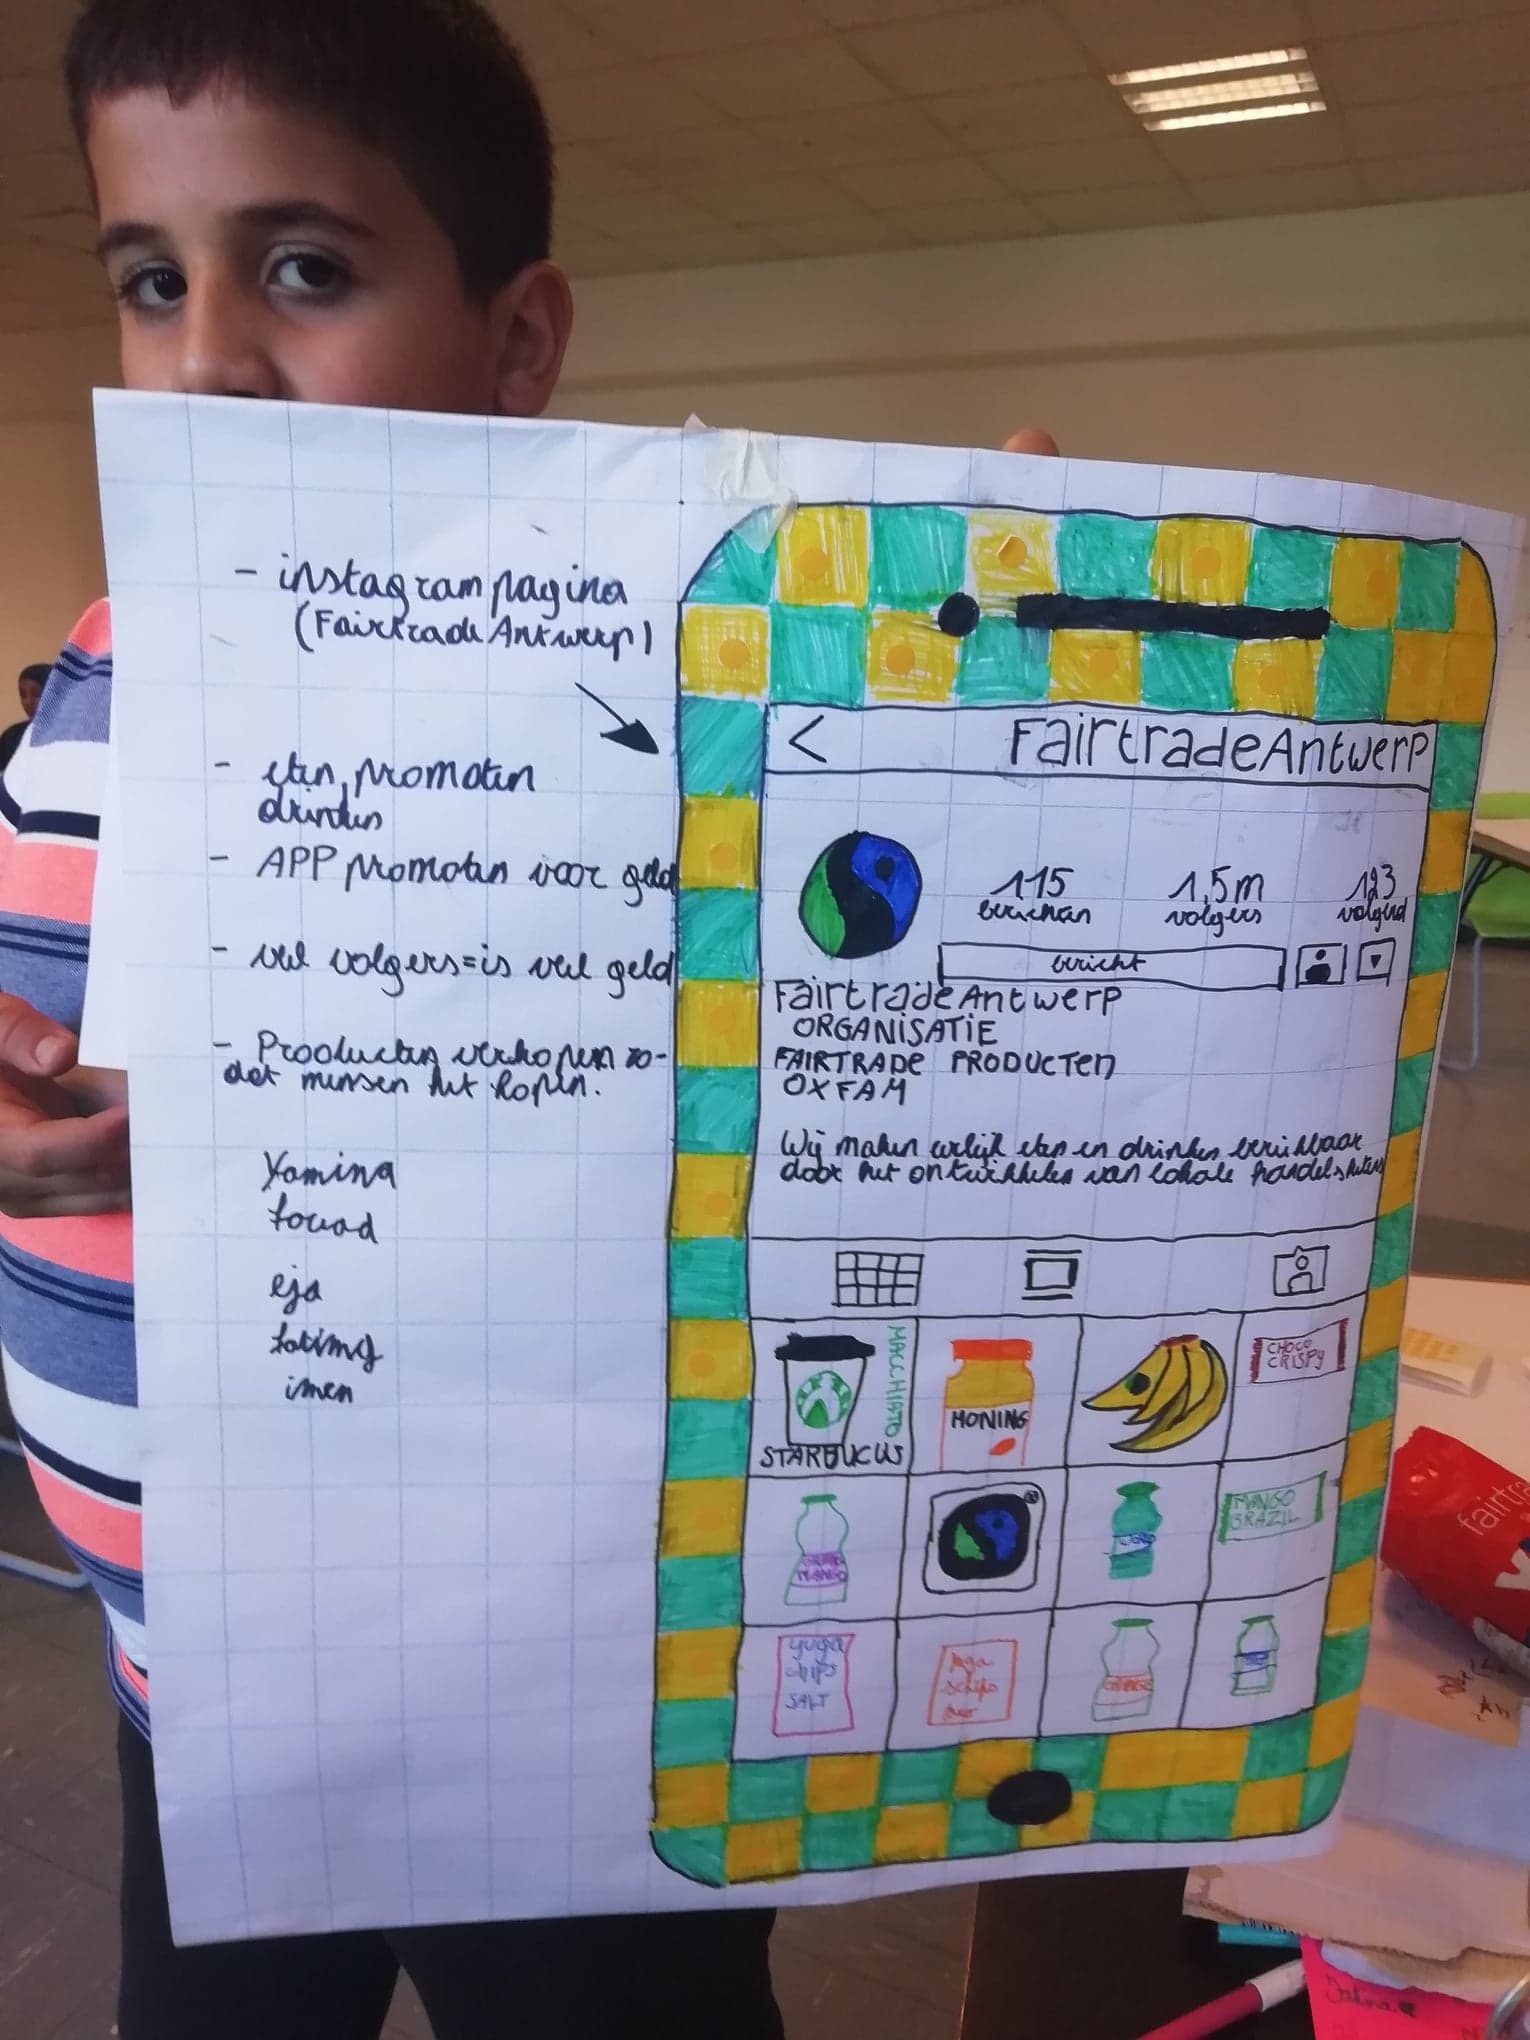 - instagram pagina
(Fairtrade Antwerp)
- eten, promoten
drinken
- APP promoten voor geld
- veel volgers = is veel geld
- Producten verkopen zo-
dat mensen het kopen.
Yamina
fouad
eja
fatima
imen
< FairtradeAntwerp
115 1,5m 123
berichten volgers volgend
bericht
FairtradeAntwerp
ORGANISATIE
FAIRTRADE PRODUCTEN
OXFAM
Wij maken eerlijk eten en drinken bereikbaar
door het ontwikkelen van lokale handelsketens
MACCHIATO
STARBUCUS
HONING
CHOCO
CRISPY
MANGO
MANGO
BRAZIL
yuga
chips
SALT
ORANGE
fairtra